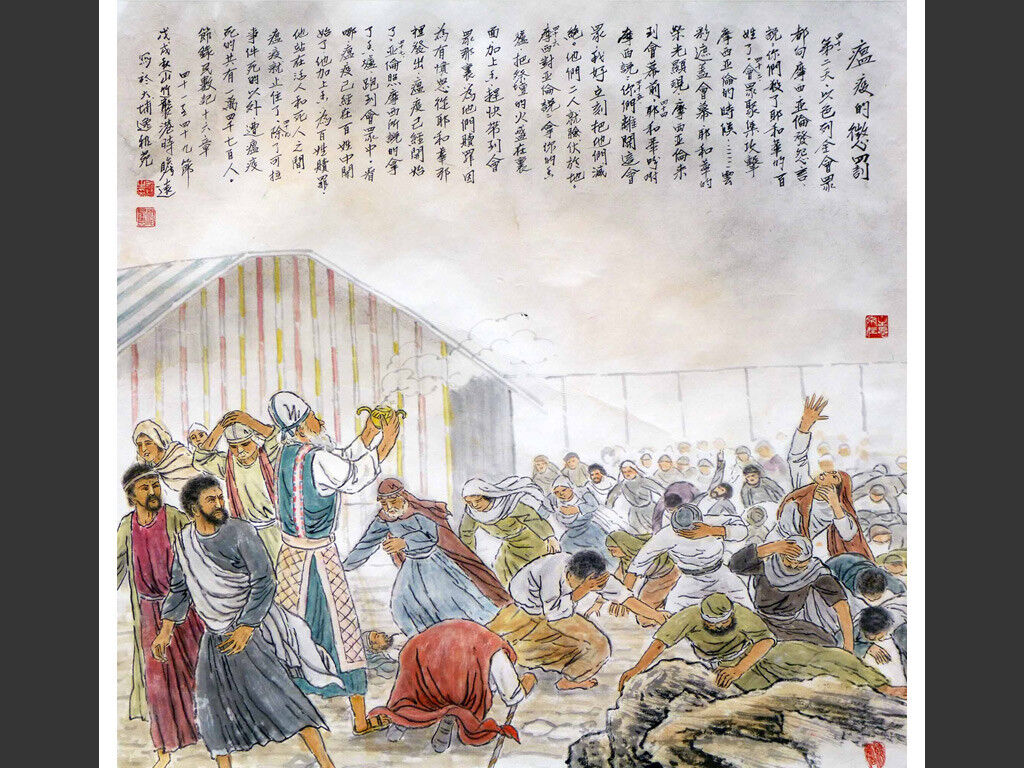 瘟疫的懲罰
四十一第二天以色列全會眾
都向摩西亞倫發怨言，
說你們殺了耶和華的百
姓了。四十二會眾聚集攻擊
摩西亞倫的時候……雲
彩遮蓋會幕耶和華的
榮光顯現。摩西亞倫來
到會幕前。四十四耶和華吩咐
摩西說四十五你們離開這會
眾，我好立刻把他們滅
絕。他們二人就臉伏於地。
四十六摩西對亞倫說：拿你的香
爐把祭壇的火盛在裏
面加上香，趕快帶到會
眾那裏，為他們贖罪因
為有憤怒從耶和華那
裡發出，瘟疫已經開始
了。四十七亞倫照摩西所說的拿
了香爐跑到會眾中，看
哪瘟疫已經在百姓中開
始了他加上香，為百姓贖罪。
他站在活人和死人之間
瘟疫就止住了。四十九除了可拉
事件死的以外遭瘟疫
死的共有一萬四千七百人。
節錄民數記十六章
四十一至四十九節
戊戌秋山竹襲港時臨遠
寫於大埔逸雅苑